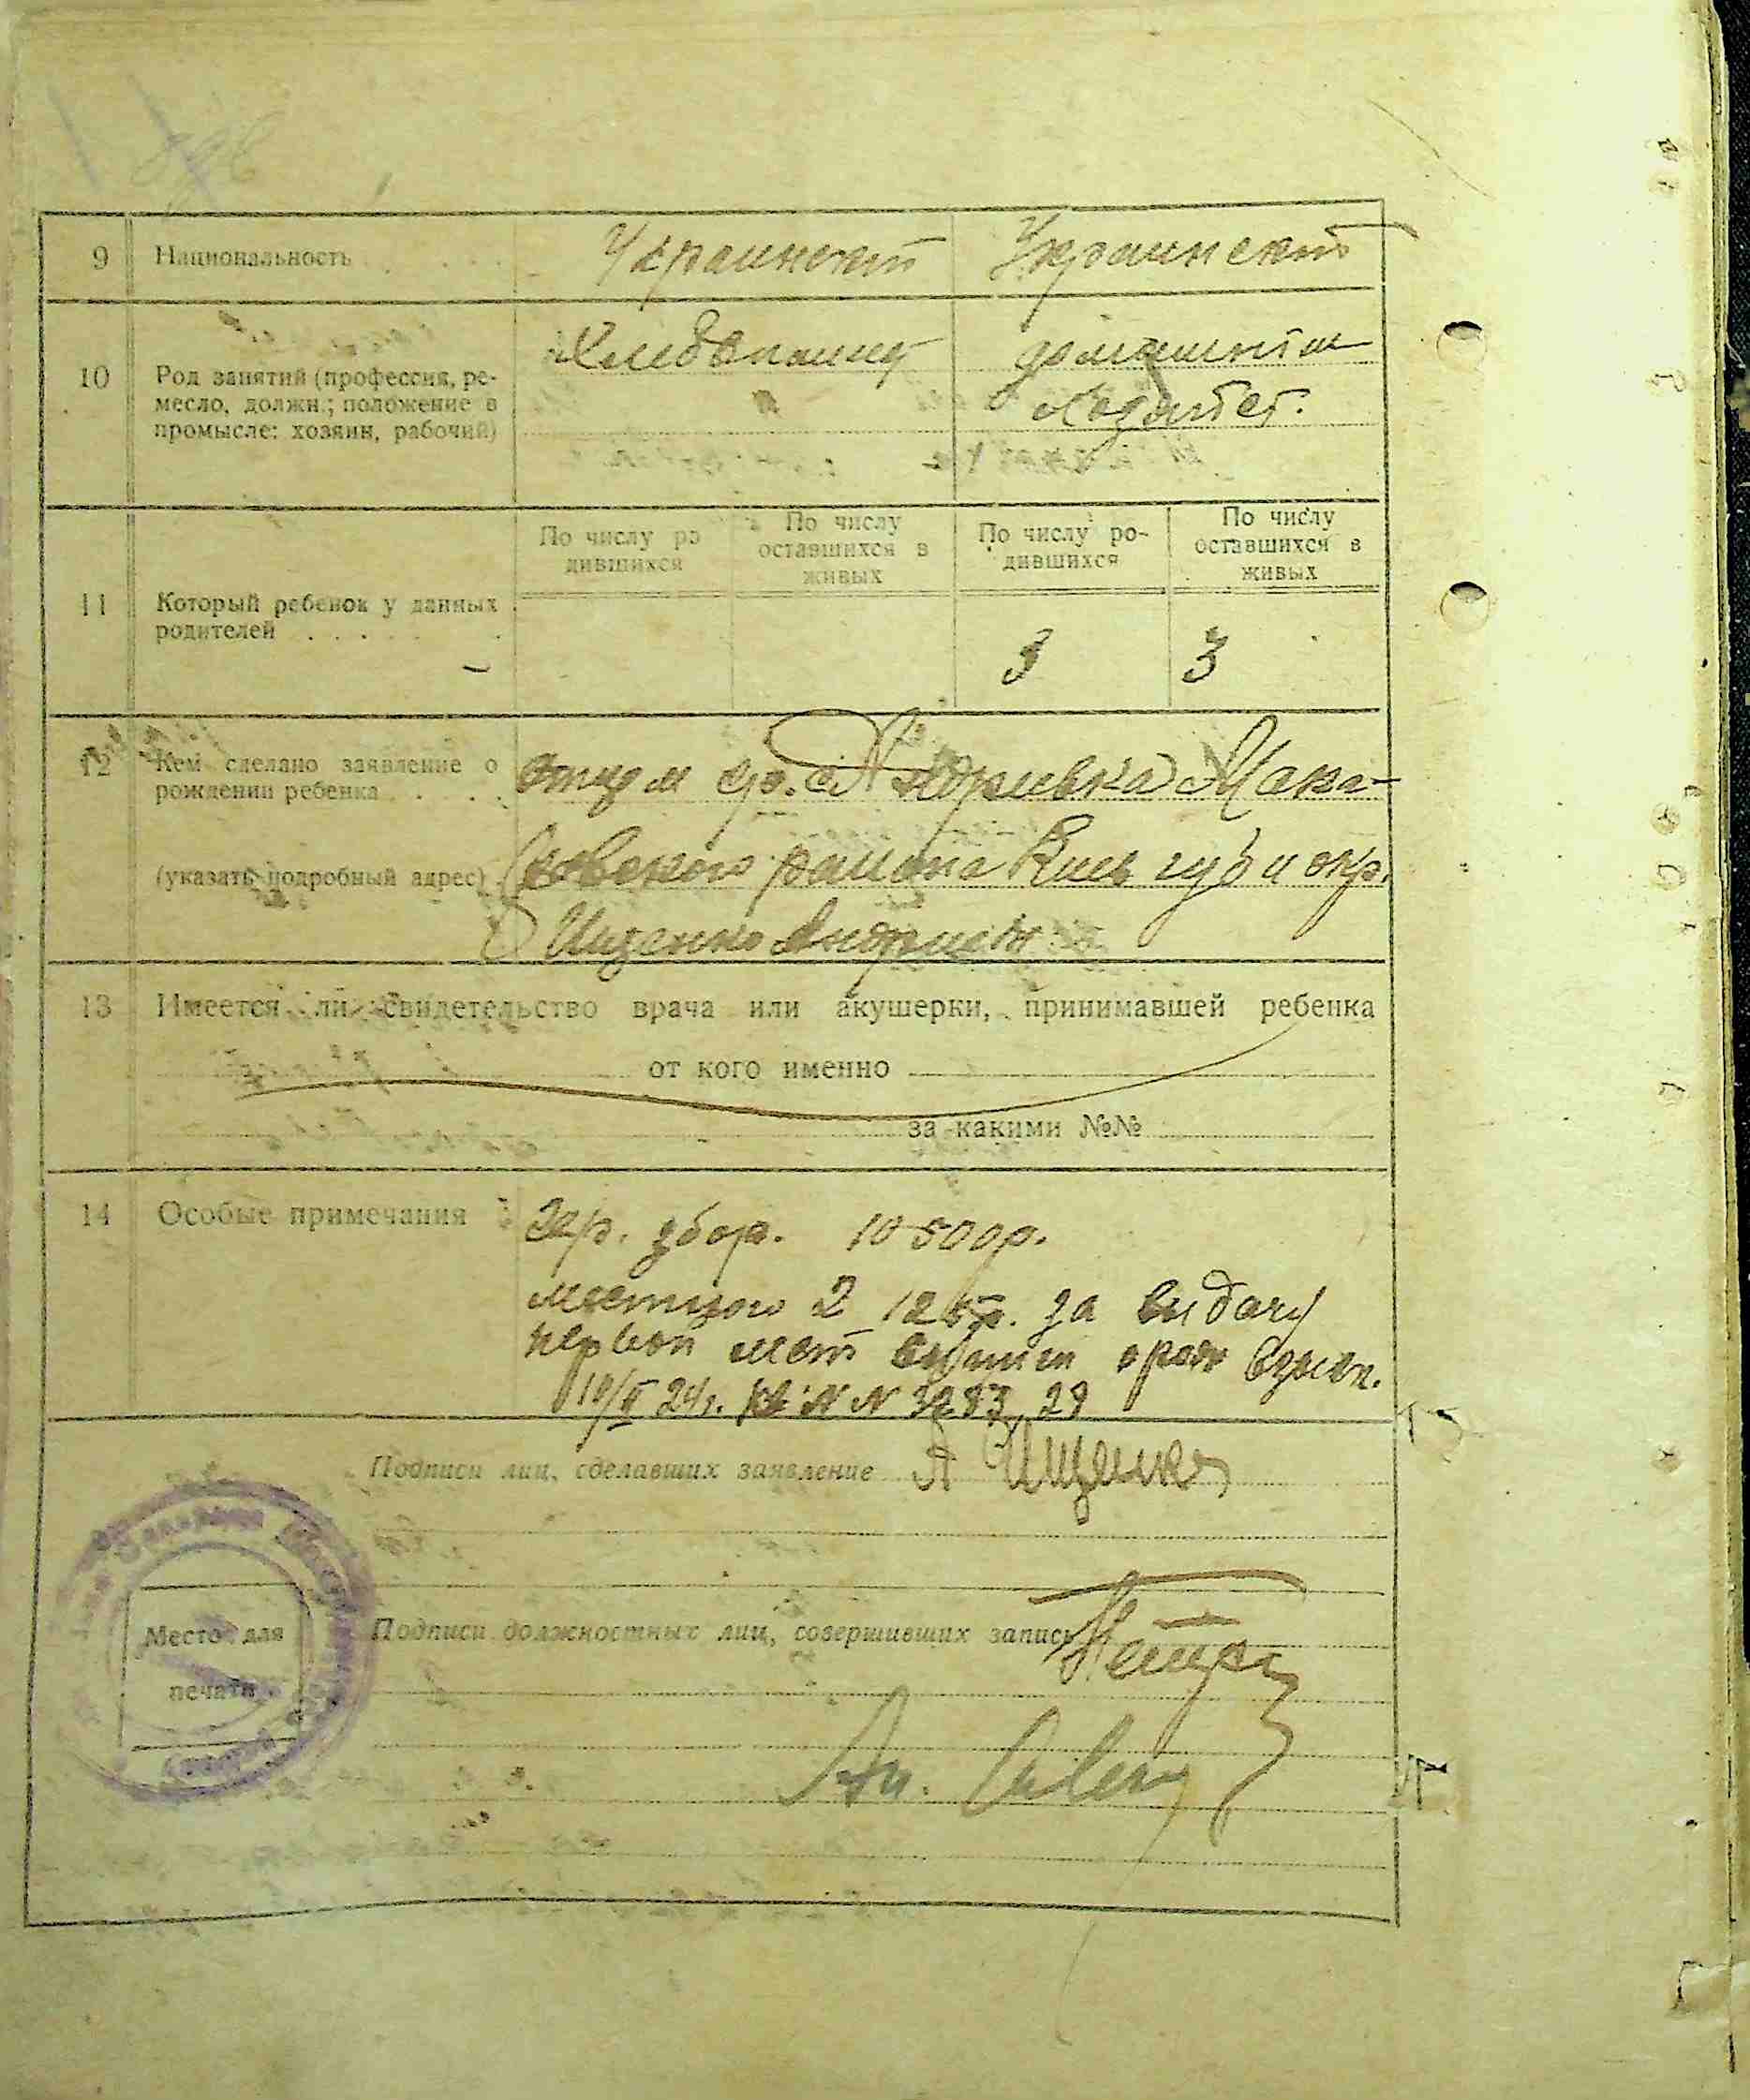 9 Национальность Украинской Украинской
10 Род занятий (профессия, ре-
месло, должн.; положение в
промысле: хозяин, рабочий)
Хлебопашец домашним
хозяйст.
11 Который ребенок у данных
родителей
По числу ро
дившихся
По числу
оставшихся в
живых
По числу ро-
дившихся
По числу
оставшихся в
живых
3 3
12 Кем сделано заявление о
рождении ребенка
(указать подробный адрес)
отцем гр. с Андриевка Мака-
ровского района Киев губ и окр.
Ищенко Андрием
13 Имеется ли свидетельство врача или акушерки, принимавшей ребенка
от кого именно
за какими №№
14 Особые примечания
збор. 10500р.
местного за видачу
первой
24г. кв: N N 3283, 29
Подписи лиц, сделавших заявление А Ищенко
Подписи должностных лиц, совершивших запись
Место для
печати